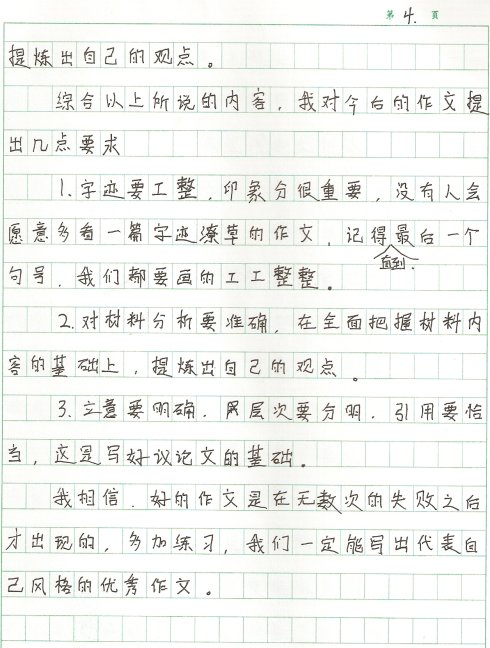 第 4. 页
提炼出自己的观点。
综合以上所说的内容，我对今后的作文提
出几点要求
1.字迹要工整，印象分很重要，没有人会
愿意多看一篇字迹潦草的作文，记得最后一个
直到
句号，我们都要画的工工整整。
2.对材料分析要准确，在全面把握材料内
容的基础上，提炼出自己的观点。
3.立意要明确．层次要分明．引用要恰
当，这是写好议论文的基础。
我相信．好的作文是在无数次的失败之后
才出现的，多加练习，我们一定能写出代表自
己风格的优秀作文。